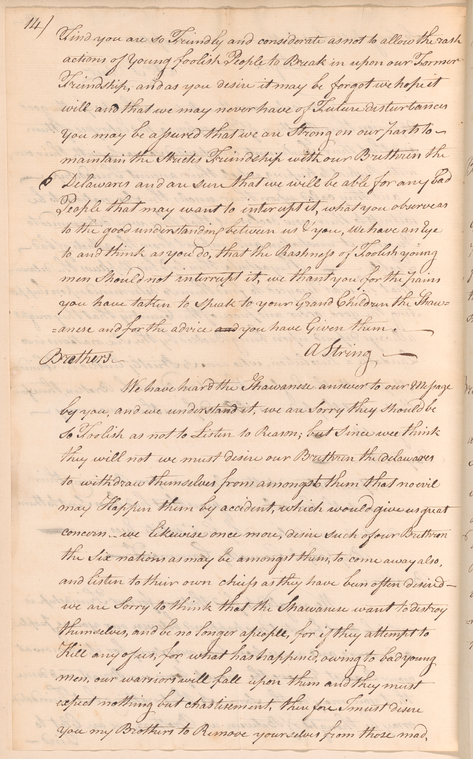 14/
find you are so Friendly and considerate as not to allow the rash
actions of Young foolish People to Break in upon our Former
Friendship, and as you desire it may be forgot we hope it
will and that we may never have of Future disturbances
You may be assured that we are Strong on our parts to
maintain the Strictest Friendship with our Brethren the
Delawares and are sure that we will be able for any bad
People that may want to interupt it, what you observe as
to the good understanding between us & you, we have an Eye
to and think as you do, that the Rashness of Foolish young
men Should not interrupt it, we thank you for the pains
you have taken to Speak to your Grand Children the Shaw=
=anese and for the advice and you have Given them.
A String
Brothers
We have heard the Shawanese answer to our Message
by you, and we understand it, we are Sorry they Should be
So Foolish as not to Listen to Reason; but Since wee think
they will not we must desire our Brethren the Delawares
to withdraw themselves from amongst them that no evil
may Happen them by accident, which would give us great
concern we likewise once more, desire such of our Brethren
the Six nations as may be amongst them, to come away also,
and Listen to their own chiefs as they have been often desired
we are Sorry to think that the Shawanese want to destroy
themselves, and be no longer a people, for if they attempt to
Kill any of us, for what has happened, owing to bad young
men, our warriors will fall upon them and they must
expect nothing but chastisement, therefore I must desire
you my Brothers to Remove yourselves from those mad